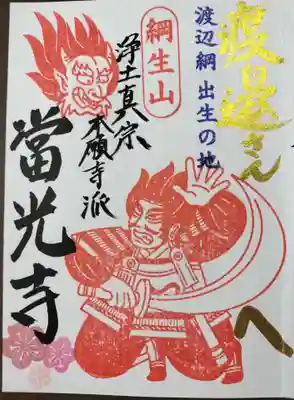 渡邉さん
へ
渡辺綱 出生の地
綱生山
浄土真宗
本願寺派
當光寺